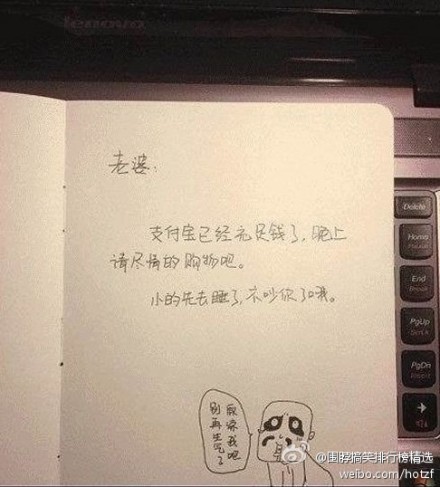 lenovo
老婆:
支付宝已经充足钱了,晚上
请尽情的购物吧。
小的先去睡了,不吵你了哦。
原谅我吧
别再生气了
Delete
Home
End
PgUp
PgDn
@围脖搞笑排行榜精选
weibo.com/hotzf